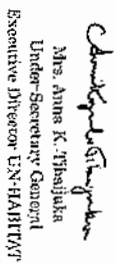 Mrs. Anna K. Tibaijuka
Under-Secretary General
Executive Director UN-HABITAT